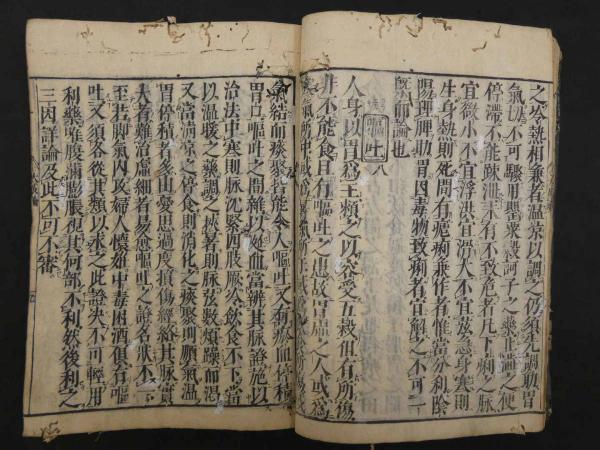 之冷熱相兼者温凉以調之仍須先調助胃
氣切不可驟用罌粟殼訶子之藥
停滯不能疎泄未有不致危者凡下痢之脉
宜微小不宜浮洪宜滑大不宜弦急身寒則
生身熱則死間有瘧痢兼作者惟當分利陰
陽理脾助胃因毒物致痢者宜解之不可一
槩而論也
嘔吐八
人身以胃爲主賴之以容受五穀但有所傷
非不能食且有嘔吐之患故胃虚之人或爲
氣結而痰聚皆能令人嘔吐又有瘀血停積
胃口嘔吐之間雜以涎血當辨其脉證施以
治法中寒則脉沉緊四肢厥冷飲食不下當
以温暖之藥調之挾暑則脉弦數煩躁而渴
又當清凉之停食則消化之痰聚則順氣温
胃停積者多由憂思過度損傷經絡其脉實
大者難治虚細者易愈嘔吐之證名狀不一
至若脚氣内攻婦人懷娠中毒困酒俱有嘔
吐又須各從其類以求之此證決不可輕用
利藥唯腹滿膨脹視其何部不利然後利之
三因詳論及此不可不審